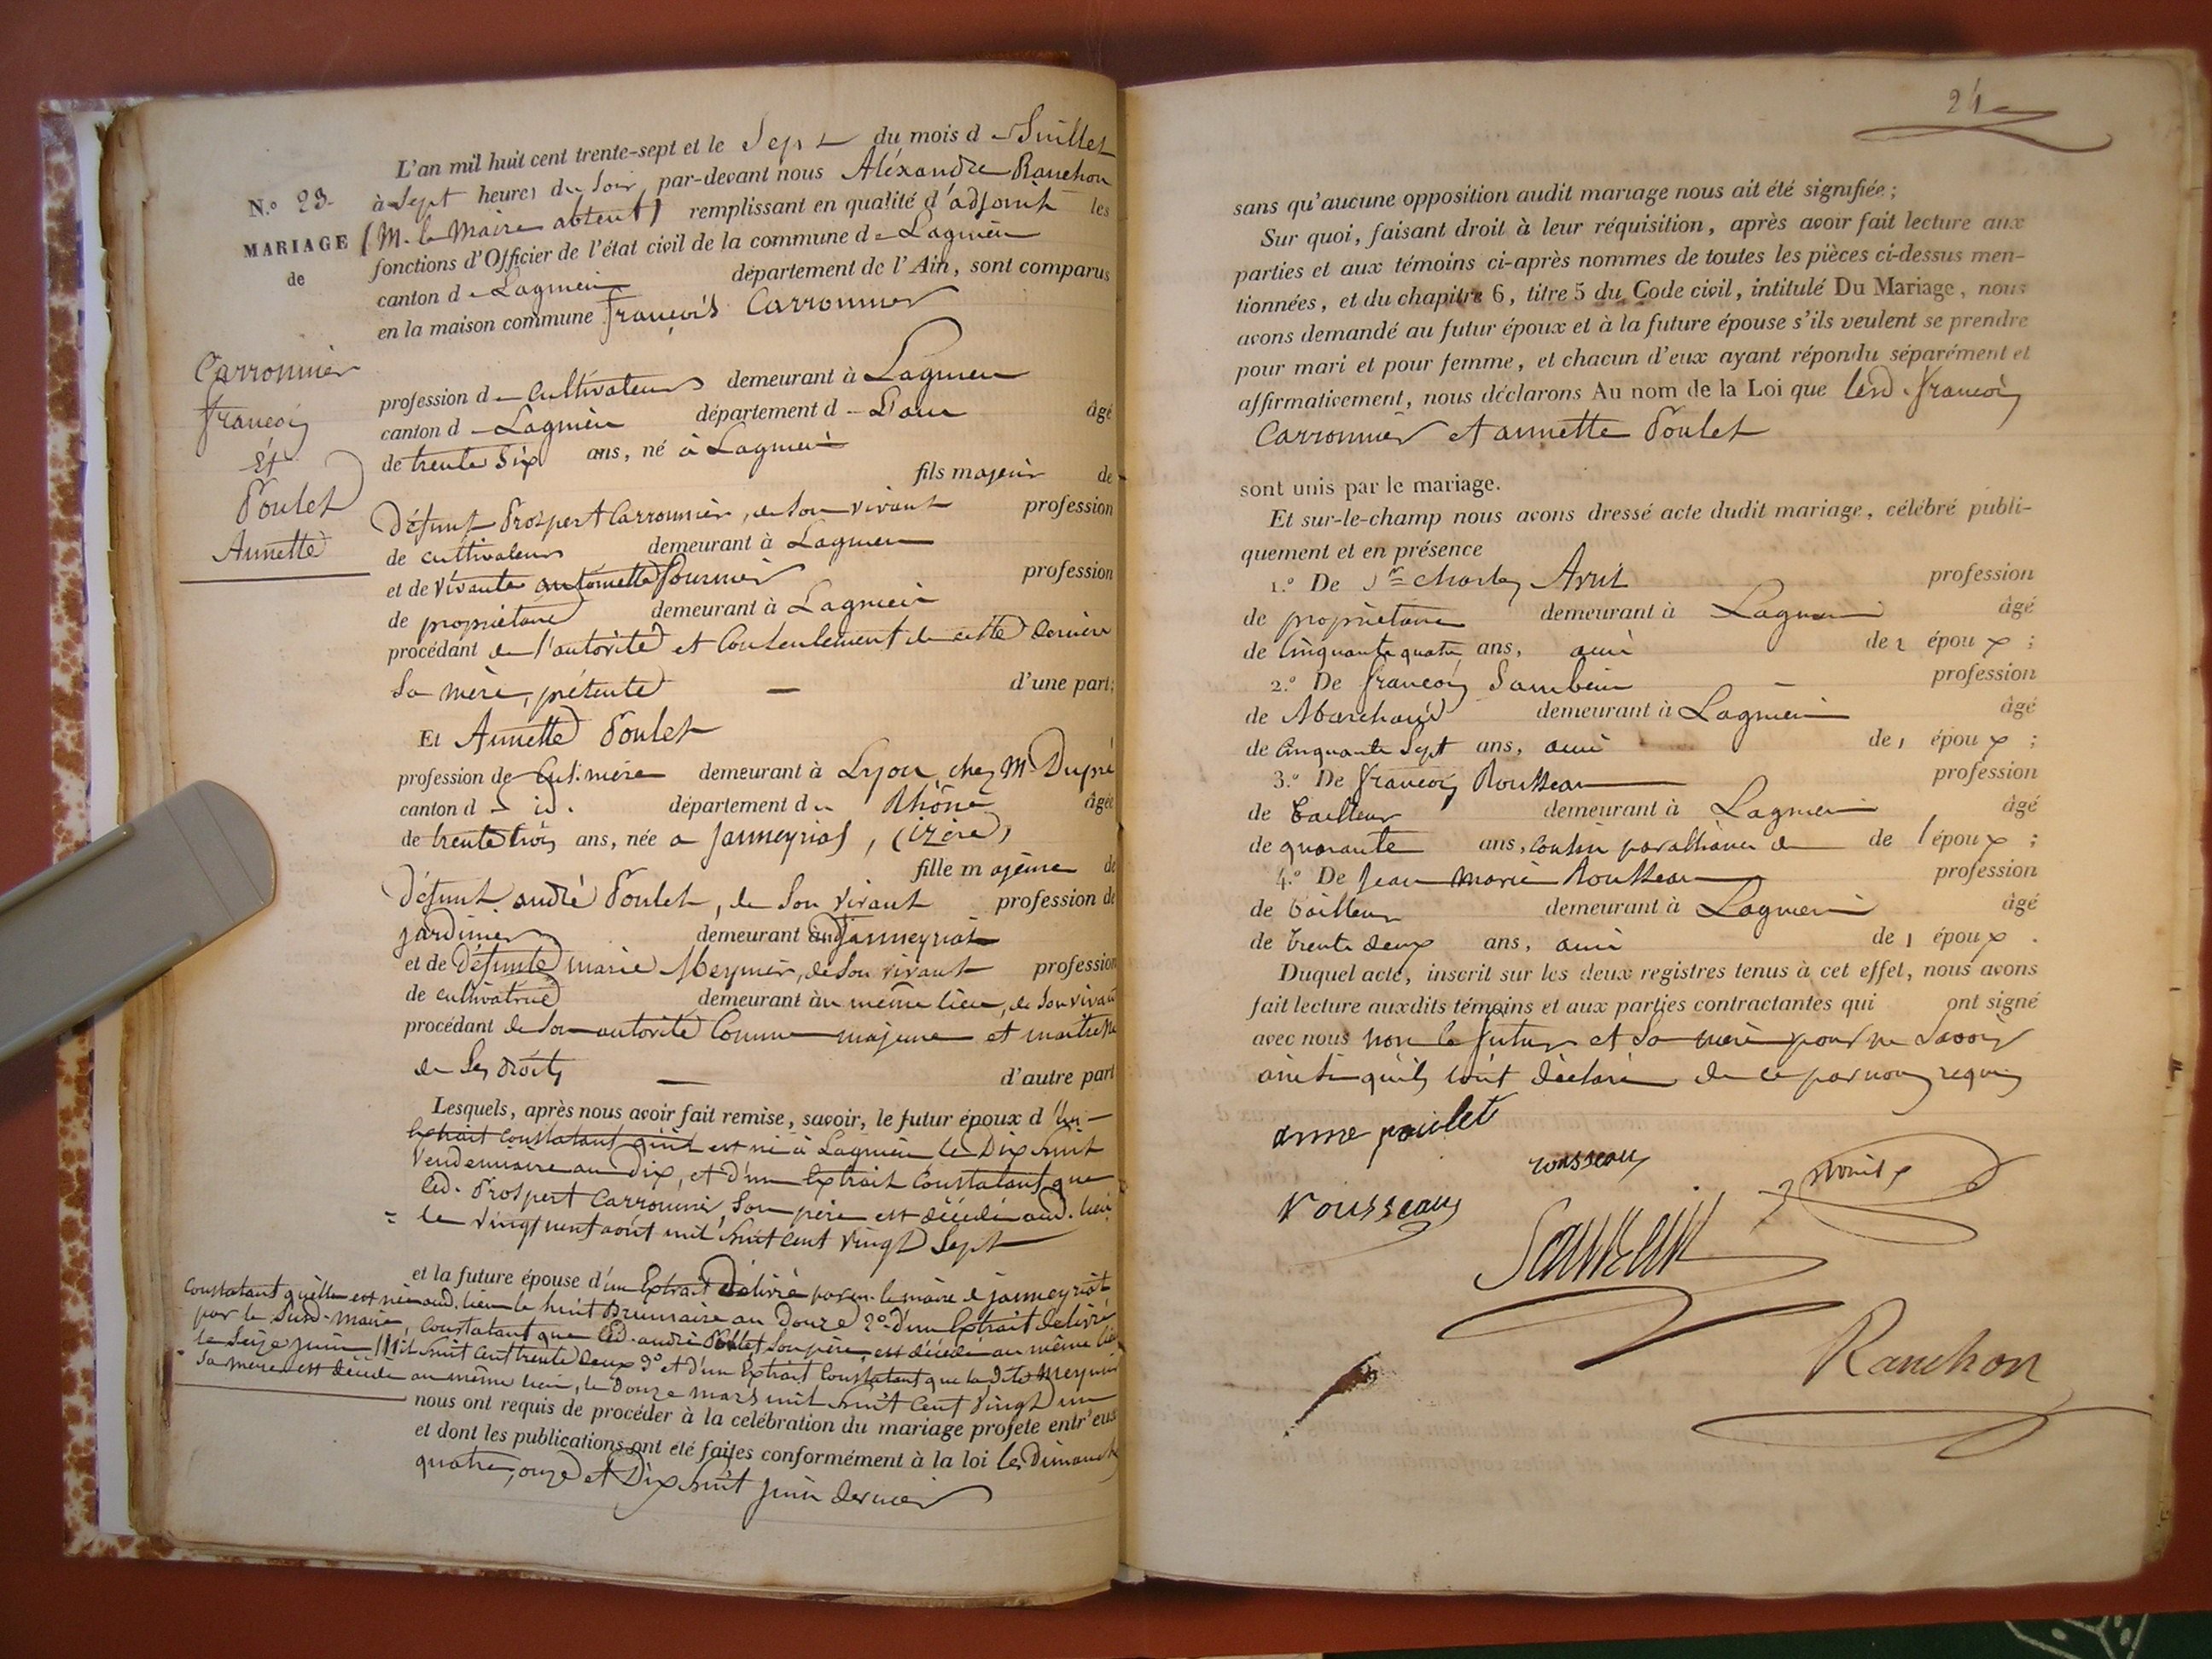 L'an mil huit cent trente-sept et le Sept du mois de Juillet
à Sept heures du Soir par-devant nous Aléxandre Ranchon
(M. le Maire absent) remplissant en qualité d'adjoint les
fonctions d'Officier de l'état civil de la commune de Lagnieu
canton de Lagnieu département de l'Ain, sont comparus
en la maison commune François Carronnier
N.o 23.
MARIAGE
de
Carronnier
François
Et
Poulet
Annette
profession de Cultivateur demeurant à Lagnieu
canton de Lagnieu département de L'ain âgé
de trente Six ans, né à Lagnieu
fils majeur de
Défunt Prospert Carronnier, de Son vivant profession
de cultivateur demeurant à Lagnieu
et de vivante antoinette fournier profession
de propriétaire demeurant à Lagnieu
procédant de l'autorité et Consentement de cette dernière
Sa mère, présente — d'une part;
Et Annette Poulet
profession de Cuisinière demeurant à Lyon, chez Mr Dupré
canton de id. département du Rhône âgée
de trente trois ans, née a janneyrias, (izère)
fille majeure de
Défunt andré Poulet, de Son vivant profession de
jardinier demeurant à janneyriat
et de Défunte marie Meynier, de Son vivant profession
de cultivatrice demeurant au même lieu, de Son vivant
procédant de Son autorité Comme majeure et maitresse
de Ses droits — d'autre part
Lesquels, après nous avoir fait remise, savoir, le futur époux d'un
Extrait Constatant qu'il est né à Lagnieu le Dix huit
Vendemiaire an Dix, et d'un Extrait Constatant que
led. Prospert Carronnier, Son père est décédé aud. lieu
= le vingt neuf août mil huit cent vingt Sept
et la future épouse d'un Extrait délivré par m. le maire de janneyriat
Constatant qu'elle est née aud. lieu le huit Brumaire an Douze 2o d'un Extrait délivré
par le Susd. Maire, Constatant que led. andré Poulet Son père, est décédé au même lieu
le Seize juin Mil huit cent trente Deux 3o et d'un Extrait Constatant que la dite Meynier
Sa mère est décédée au même lieu, le Douze mars mil huit Cent Vingt un
nous ont requis de procéder à la célébration du mariage projeté entr'eux
et dont les publications ont été faites conformément à la loi les Dimanches
quatre, onze et Dix huit juin dernier
24
sans qu'aucune opposition audit mariage nous ait été signifiée;
Sur quoi, faisant droit à leur réquisition, après avoir fait lecture aux
parties et aux témoins ci-après nommes de toutes les pièces ci-dessus men-
tionnées, et du chapitre 6, titre 5 du Code civil, intitulé Du Mariage, nous
avons demandé au futur époux et à la future épouse s'ils veulent se prendre
pour mari et pour femme, et chacun d'eux ayant répondu séparément et
affirmativement, nous déclarons Au nom de la Loi que lesd. François
Carronnier et annette Poulet
sont unis par le mariage.
Et sur-le-champ nous avons dressé acte dudit mariage, célébré publi-
quement et en présence
1.o De Sr Charles Avril profession
de propriétaire demeurant à Lagnieu âgé
de Cinquante quatre ans, ami de l'époux;
2.o De François Sambein — profession
de Marchand demeurant à Lagnieu âgé
de Cinquante Sept ans, ami de l'époux;
3.o De François Rousseau profession
de tailleur demeurant à Lagnieu âgé
de quarante ans, cousin par alliance de de l'époux;
4.o De jean marie Rousseau profession
de tailleur demeurant à Lagnieu âgé
de trente deux ans, ami de l'époux.
Duquel acte, inscrit sur les deux registres tenus à cet effet, nous avons
fait lecture auxdits témoins et aux parties contractantes qui ont signé
avec nous non le futur et Sa mère pour ne Savoir
ainsi qu'ils l'ont déclaré de ce par nous requis
anne poulet
rousseau
Rousseau
Ranchon